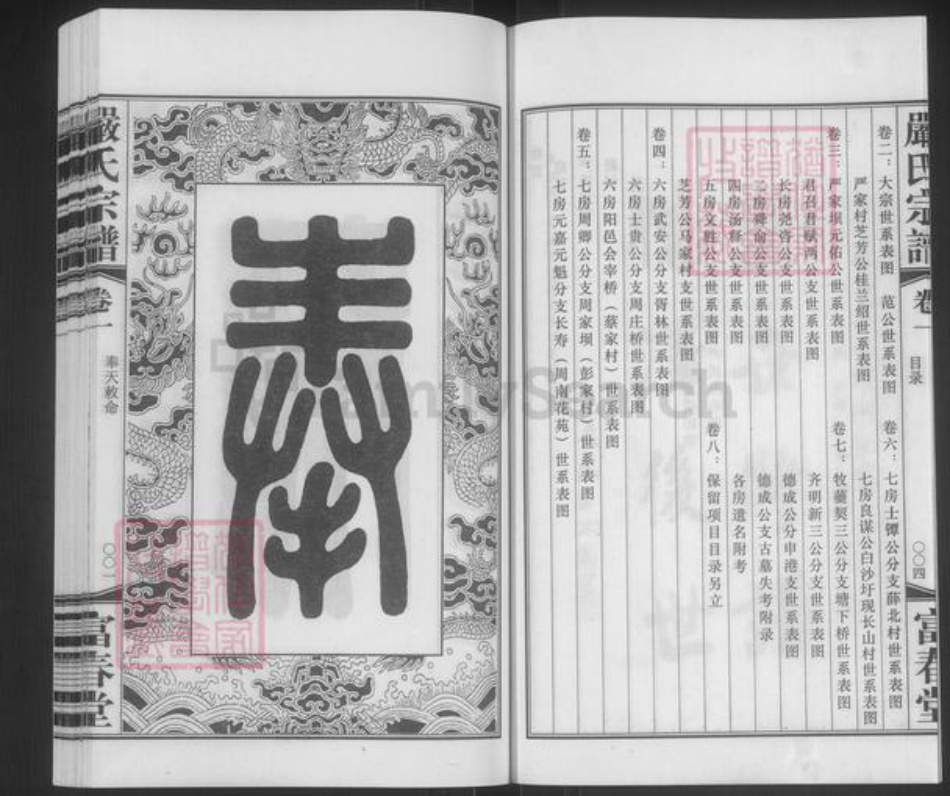 嚴氏宗譜
卷一
目录
〇〇四
富春堂
卷二：大宗世系表图 范公世系表图
严家村芝芳公桂兰绍世系表图
卷三：严家坝元佑公世系表图
君召君赋两公支世系表图
长房尧咨公支世系表图
二房舜俞公支世系表图
四房汤释公支世系表图
五房文胜公支世系表图
芝芳公马家村支世系表图
卷四：六房武安公分支胥林世系表图
六房士贵公分支周庄桥世系表图
六房阳邑会宰桥（蔡家村）世系表图
卷五：七房周卿公分支周家坝（彭家村）世系表图
七房元嘉元魁分支长寿（周南花苑）世系表图
卷六：七房士镡公分支薛北村世系表图
七房良谋公白沙圩现长山村世系表图
卷七：牧蘖契三公分支塘下桥世系表图
齐明新三公分支世系表图
德成公分申港支世系表图
德成公支古墓失考附录
各房遗名附考
卷八：保留项目目录另立
奉
嚴氏宗譜
卷一
奉天敕命
〇〇一
富春堂
FamilySearch